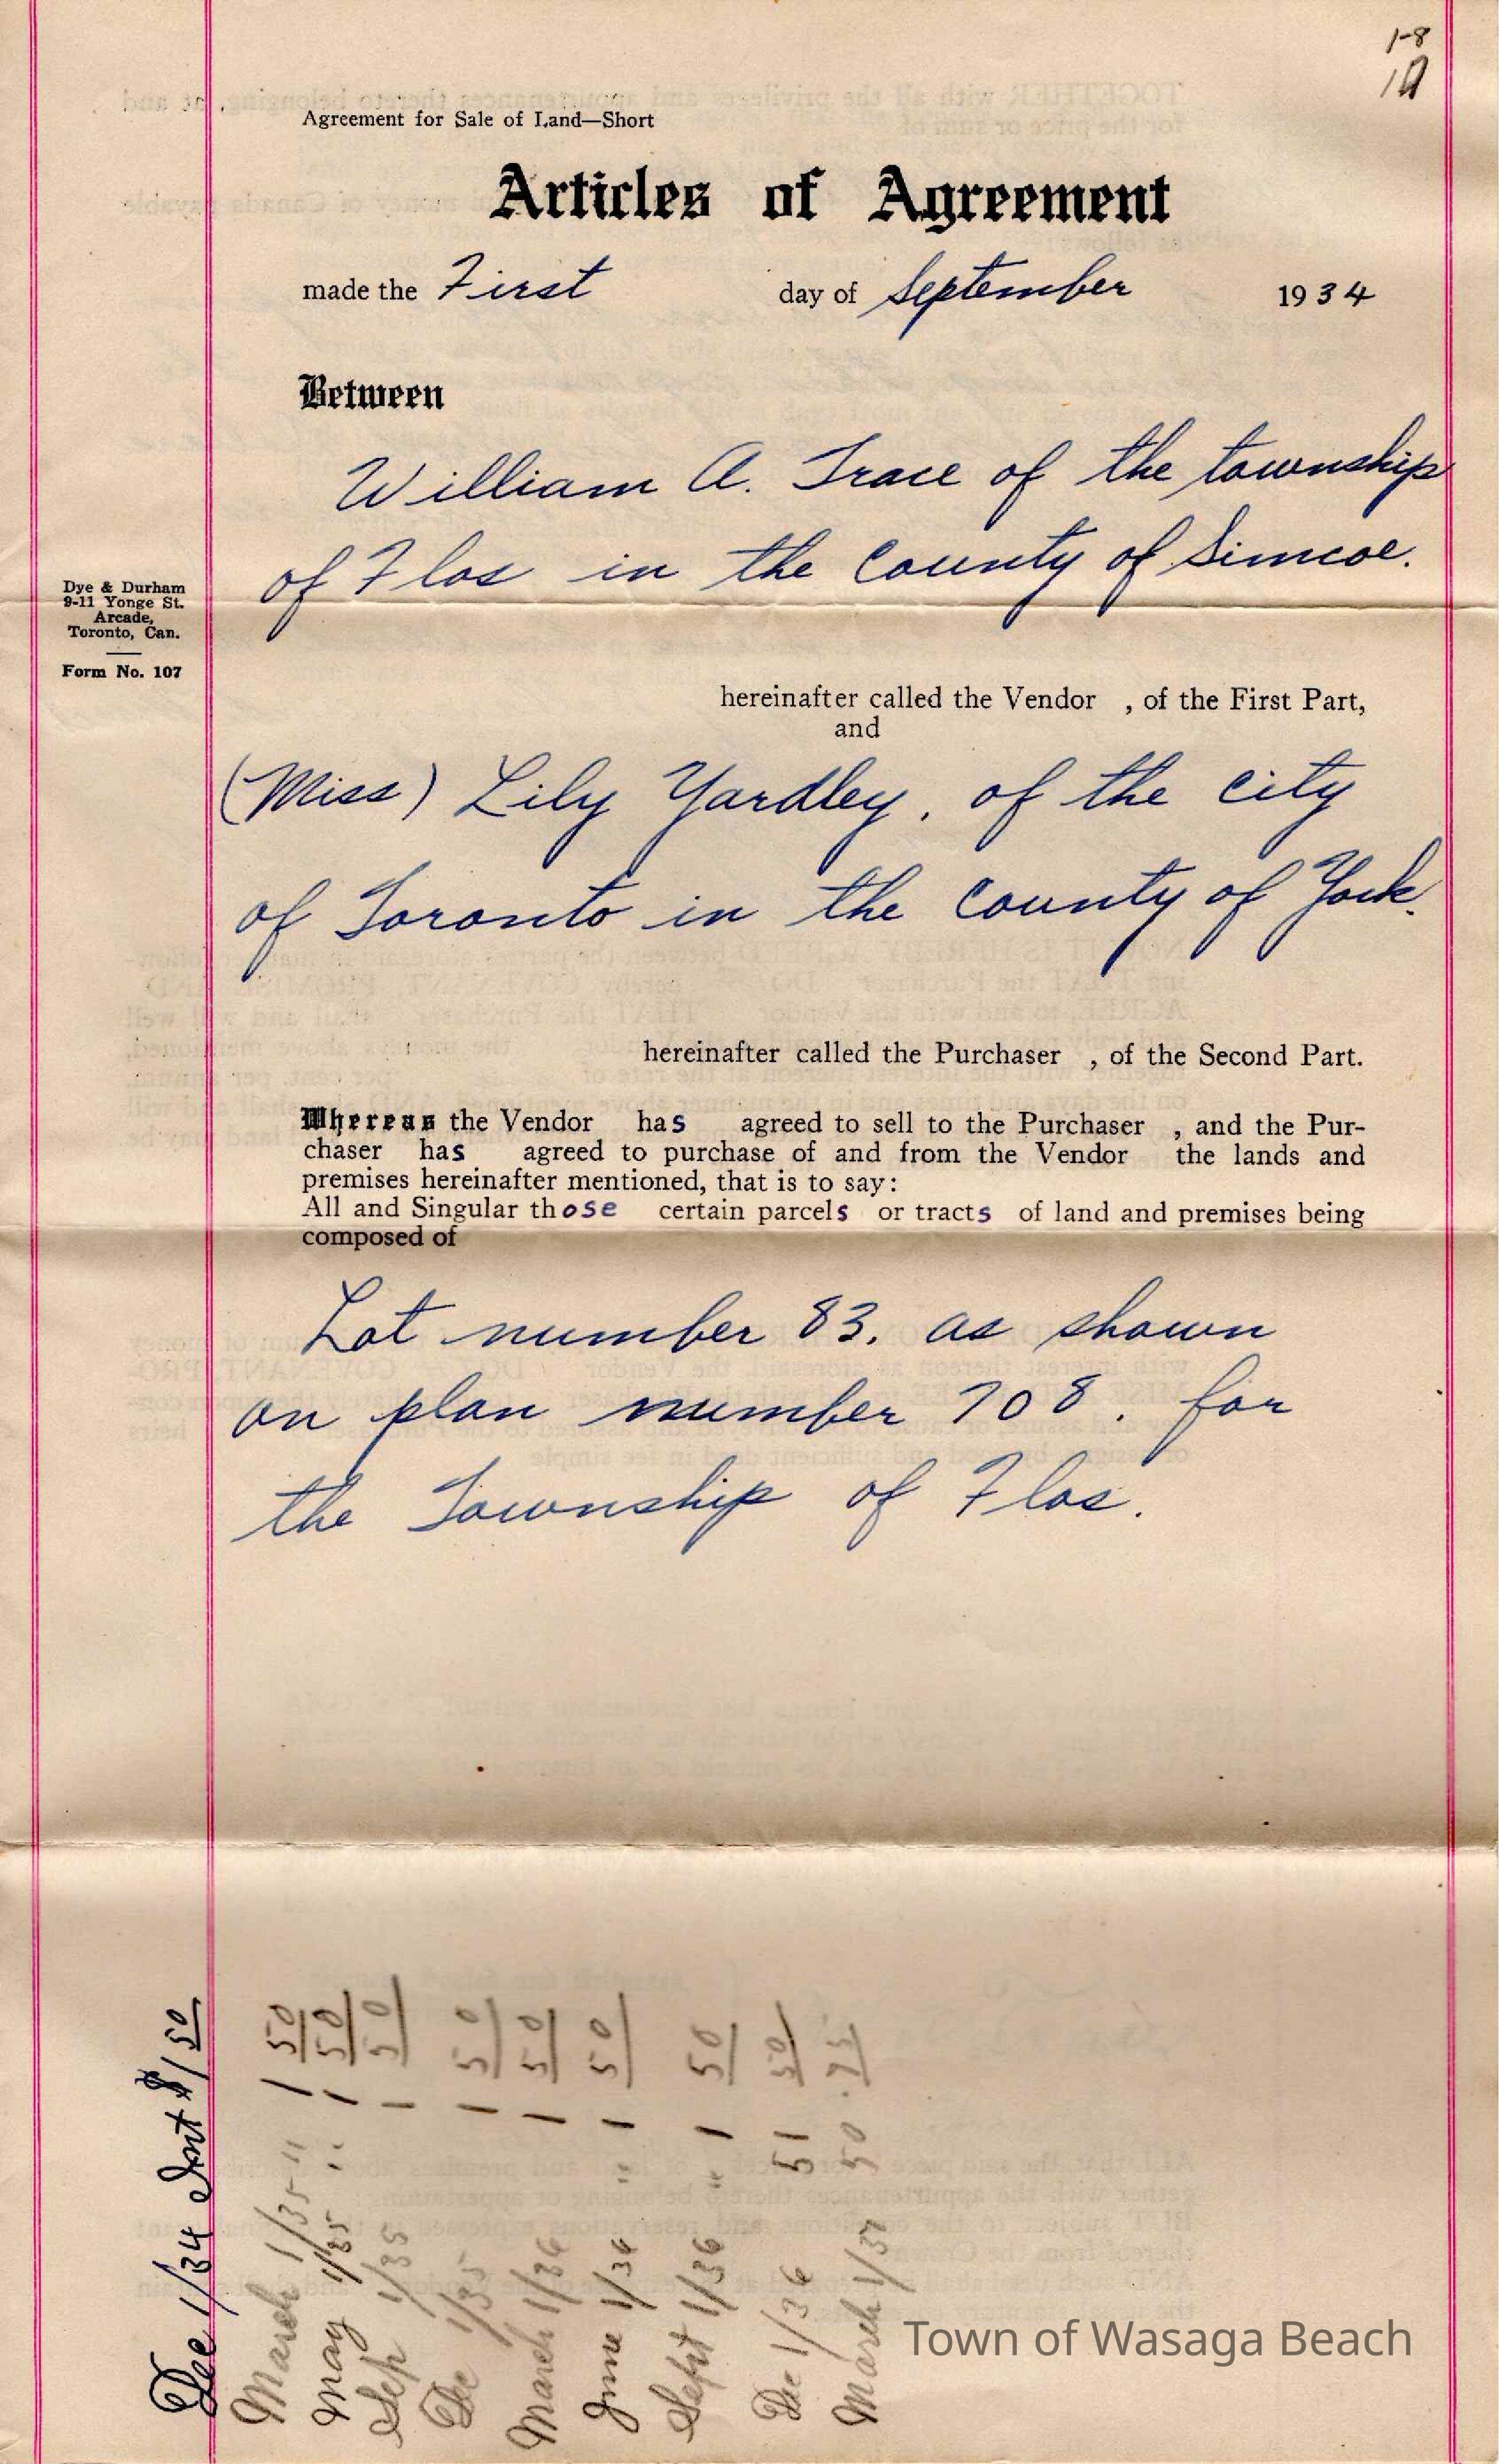 1-8
Agreement for Sale of Land—Short
Articles of Agreement
made the First day of September 1934
Between
William A. Trace of the township
of Flos in the County of Simcoe.
Dye & Durham
9-11 Yonge St.
Arcade,
Toronto, Can.
Form No. 107
hereinafter called the Vendor , of the First Part,
and
(Miss) Lily Yardley, of the City
of Toronto in the County of York.
hereinafter called the Purchaser , of the Second Part.
Whereas the Vendor has agreed to sell to the Purchaser , and the Pur-
chaser has agreed to purchase of and from the Vendor the lands and
premises hereinafter mentioned, that is to say:
All and Singular those certain parcels or tracts of land and premises being
composed of
Lot number 83. as shown
on plan number 708. for
the Township of Flos.
Dec 1/34 Int $1/50
March 1/35 " — 5 0/
May 1/35 " — 5 0/
Sep 1/35 — 5 0/
Dec 1/35 — 5 0/
March 1/36 — 5 0/
June 1/36 " — 5 0/
Sept 1/36 " — 50/
Dec 1/36 51 50/
March 1/37 50
Town of Wasaga Beach